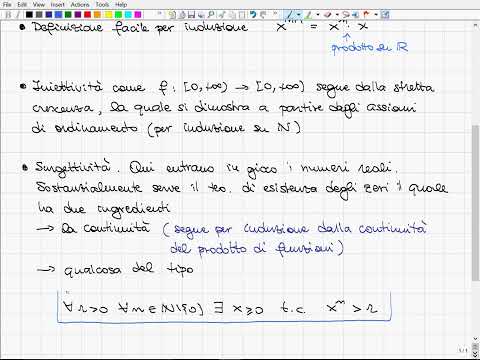 File Edit View Insert Actions Tools Help
• Definizione facile per induzione x^{m+1} = x^m · x
prodotto su ℝ
• Iniettività come f : [0,+∞) → [0,+∞) segue dalla stretta
crescenza, la quale si dimostra a partire dagli assiomi
di ordinamento (per induzione su ℕ)
• Surgettività. Qui entrano in gioco i numeri reali.
Sostanzialmente serve il teo. di esistenza degli zeri il quale
ha due ingredienti
→ la continuità (segue per induzione dalla continuità
del prodotto di funzioni)
→ qualcosa del tipo
∀ r>0 ∀ m ∈ ℕ\{0} ∃ x ≥ 0 t.c. x^m > r
1 / 1